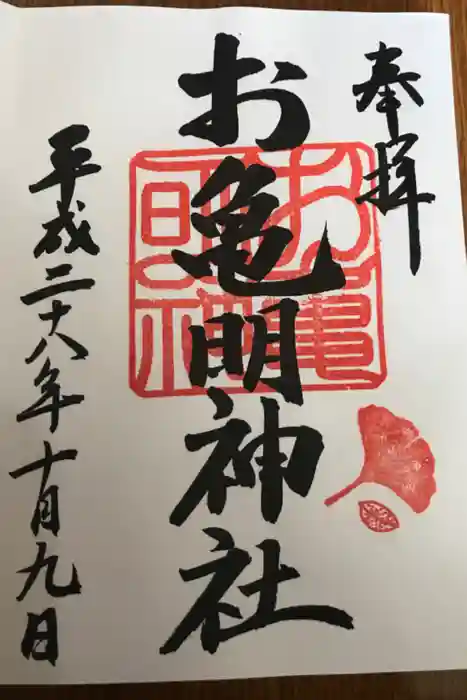 奉拝
お亀明神社
平成二十八年十月九日
お亀
明神